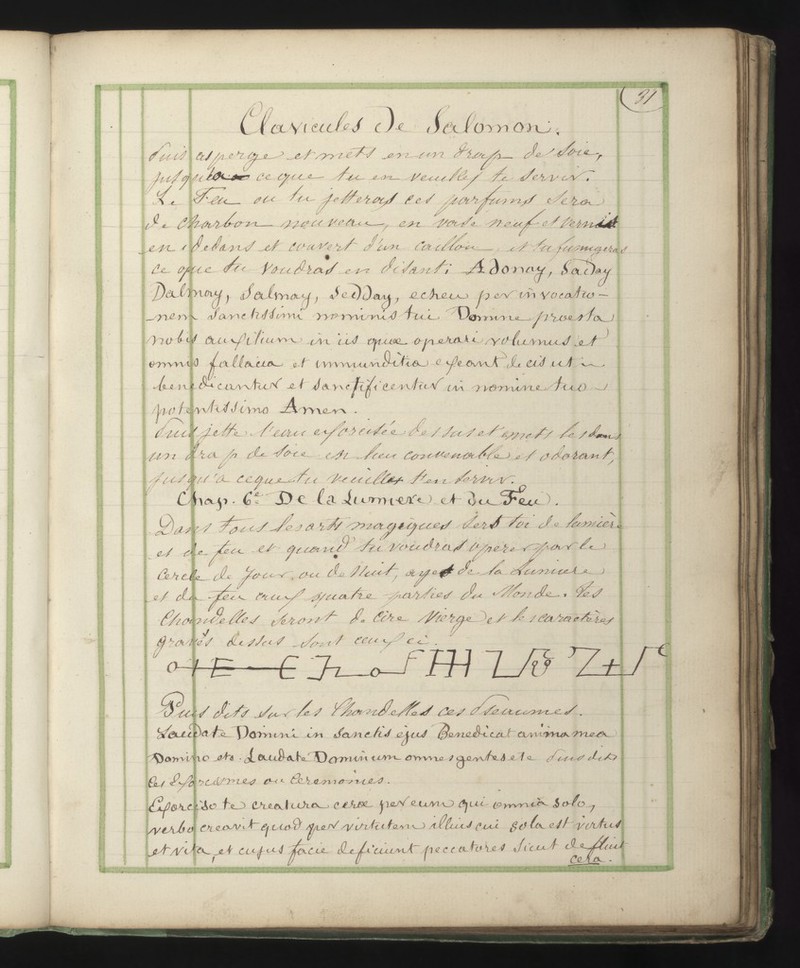 31
Clavicules De Salomon.
Puis asperge et mets en un drap de Soie,
jusqu'a ce que tu en veuilles te servir.
Le Feu ou tu jetteras ces parfums sera
de charbon nouveau, en vase neuf et vernis
en dedans et couvert d'un caillou, et tu fumigeras
ce que tu voudras en disant: Adonay, Saday
Dalmay, Salmay, Sedday, echeu per invocatio-
-nem sanctissimi nominis tui Domine praesta
nobis auxilium in iis quae operari volumus et
omnis fallacia et immunditia exeant de eis ut
benedicantur et sanctificentur in nomine tuo
potentissimo Amen.
Puis jette l'eau exorcisée dessus et mets les dans
un drap de soie en lieu convenable et odorant,
jusqu'a ceque tu veuilles t'en servir.
Chap. 6e De la Lumiere et du Feu.
Dans tous les arts magiques sers toi de lumière
et de feu et quand tu voudras operer par le
Cercle de Jour, ou de Nuit, ayes de la Lumiere
et du feu aux quatre parties du Monde. Les
Chandelles seront de Cire Vierge et les caractères
gravés dessus sont ceux ci.
Puis dits sur les Chandelles ces Pseaumes.
Laudate Domini in sanctis ejus Benedicat anima mea
Domino etc. Laudate Dominum omnes gentes etc Puis dits
les Exorcismes ou Ceremonies.
Exorciso te creatura cerae per eum qui omnia solo,
verbo creavit quod per virtutem illius cui sola est virtus
et vita, et cujus facie deficiunt peccatores sicut defluit
cera.